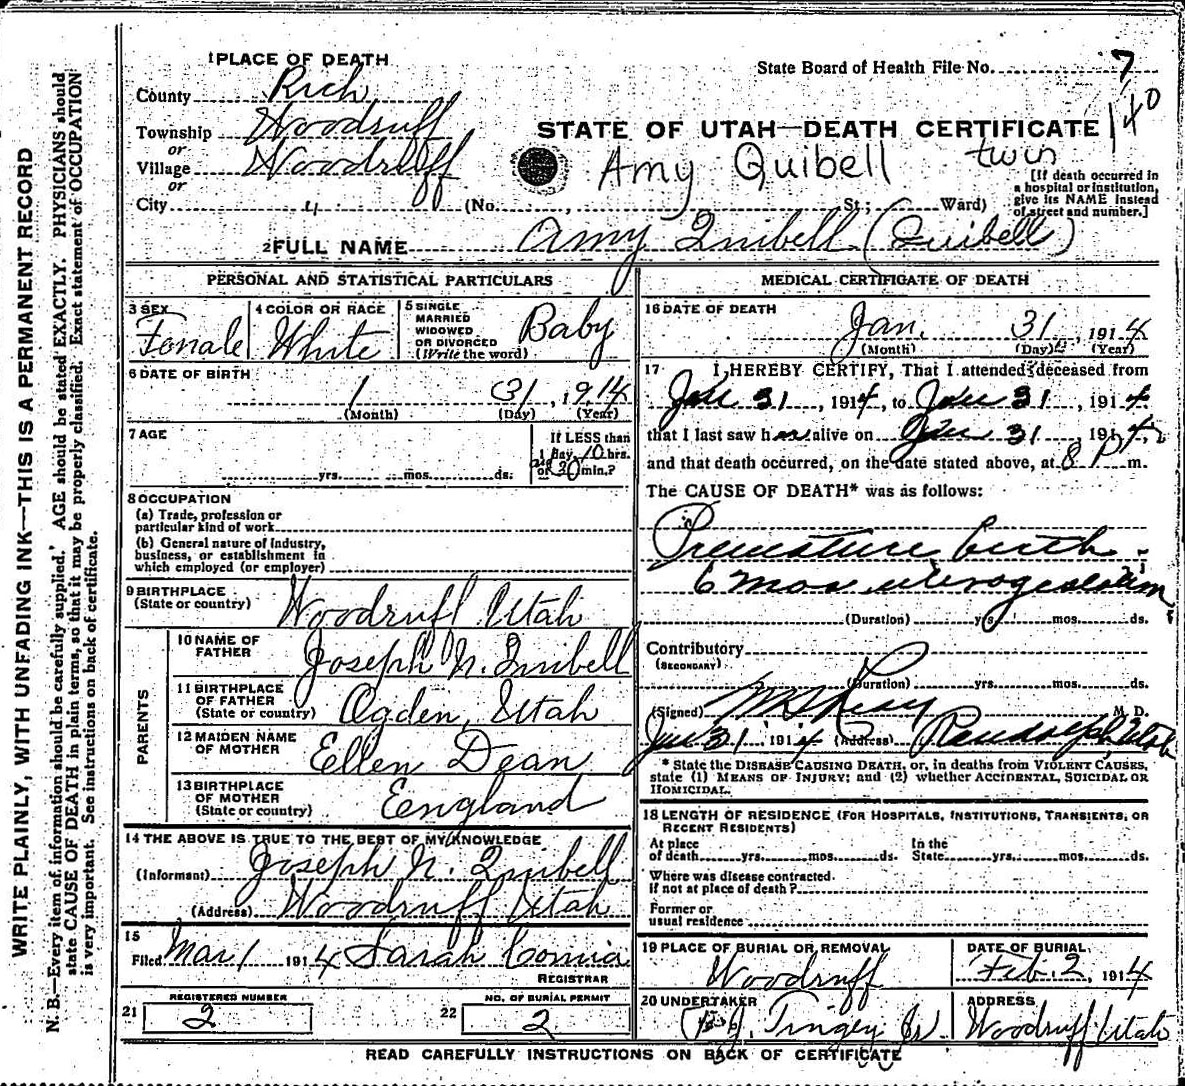 WRITE PLAINLY, WITH UNFADING INK—THIS IS A PERMANENT RECORD
N. B.—Every item of information should be carefully supplied. AGE should be stated EXACTLY. PHYSICIANS should
state CAUSE OF DEATH in plain terms, so that it may be properly classified. Exact statement of OCCUPATION
is very important. See instructions on back of certificate.
1 PLACE OF DEATH
State Board of Health File No. 7
140
County Rich
Township Woodruff
or
Village Woodruff
or
City (No. , St.; Ward)
STATE OF UTAH—DEATH CERTIFICATE
Amy Quibell twin
[If death occurred in
a hospital or institution,
give its NAME instead
of street and number.]
2 FULL NAME Amy Quibell (Quibell)
PERSONAL AND STATISTICAL PARTICULARS
3 SEX
Female
4 COLOR OR RACE
White
5 SINGLE
MARRIED
WIDOWED
OR DIVORCED
(Write the word)
Baby
6 DATE OF BIRTH
1 31, 1914
(Month) (Day) (Year)
7 AGE
yrs. mos. ds.
If LESS than
1 day, 10 hrs.
or 30 min.?
8 OCCUPATION
(a) Trade, profession or
particular kind of work
(b) General nature of industry,
business, or establishment in
which employed (or employer)
9 BIRTHPLACE
(State or country)
Woodruff Utah
PARENTS
10 NAME OF
FATHER
Joseph N. Quibell
11 BIRTHPLACE
OF FATHER
(State or country)
Ogden, Utah
12 MAIDEN NAME
OF MOTHER
Ellen Dean
13 BIRTHPLACE
OF MOTHER
(State or country)
Eengland
14 THE ABOVE IS TRUE TO THE BEST OF MY KNOWLEDGE
(Informant) Joseph N. Quibell
(Address) Woodruff Utah
15
Filed Mar 1 1914 Sarah Cornia
REGISTRAR
21 REGISTERED NUMBER
2
22 NO. OF BURIAL PERMIT
2
MEDICAL CERTIFICATE OF DEATH
16 DATE OF DEATH
Jan. 31, 1914
(Month) (Day) (Year)
17 I HEREBY CERTIFY, That I attended deceased from
Jan 31, 1914, to Jan 31, 1914
that I last saw her alive on Jan 31 1914,
and that death occurred, on the date stated above, at 8 P m.
The CAUSE OF DEATH* was as follows:
Premature birth.
6 mos uterogestation
(Duration) yrs. mos. ds.
Contributory
(SECONDARY)
(Duration) yrs. mos. ds.
(Signed) M. D.
Jan 31 1914 (Address) Randolph Utah
* State the DISEASE CAUSING DEATH, or, in deaths from VIOLENT CAUSES,
state (1) MEANS OF INJURY; and (2) whether ACCIDENTAL, SUICIDAL OR
HOMICIDAL.
18 LENGTH OF RESIDENCE (FOR HOSPITALS, INSTITUTIONS, TRANSIENTS, OR
RECENT RESIDENTS)
At place
of death yrs. mos. ds.
In the
State yrs. mos. ds.
Where was disease contracted.
if not at place of death?
Former or
usual residence
19 PLACE OF BURIAL OR REMOVAL
Woodruff
DATE OF BURIAL
Feb. 2, 1914
20 UNDERTAKER
J. Tingey Jr
ADDRESS
Woodruff Utah
READ CAREFULLY INSTRUCTIONS ON BACK OF CERTIFICATE